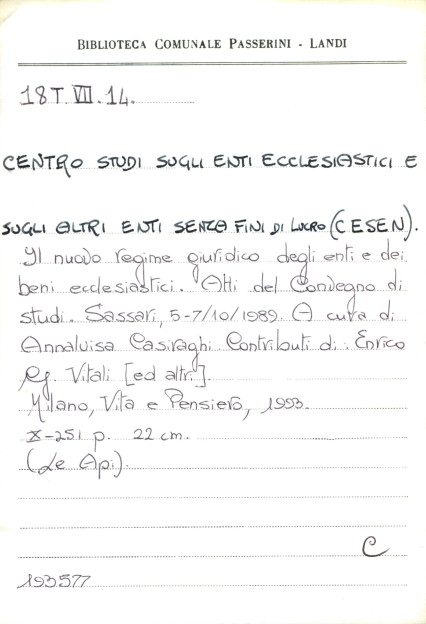 BIBLIOTECA COMUNALE PASSERINI - LANDI
18T.VII.14.
CENTRO STUDI SUGLI ENTI ECCLESIASTICI E
SUGLI ALTRI ENTI SENZA FINI DI LUCRO (CESEN).
Il nuovo regime giuridico degli enti e dei
beni ecclesiastici. Atti del Convegno di
studi. Sassari, 5-7/10/1989. A cura di
Annaluisa Casiraghi. Contributi di: Enrico
G. Vitali [ed altri].
Milano, Vita e Pensiero, 1993.
X-251 p. 22 cm.
(Le Api).
C
193577